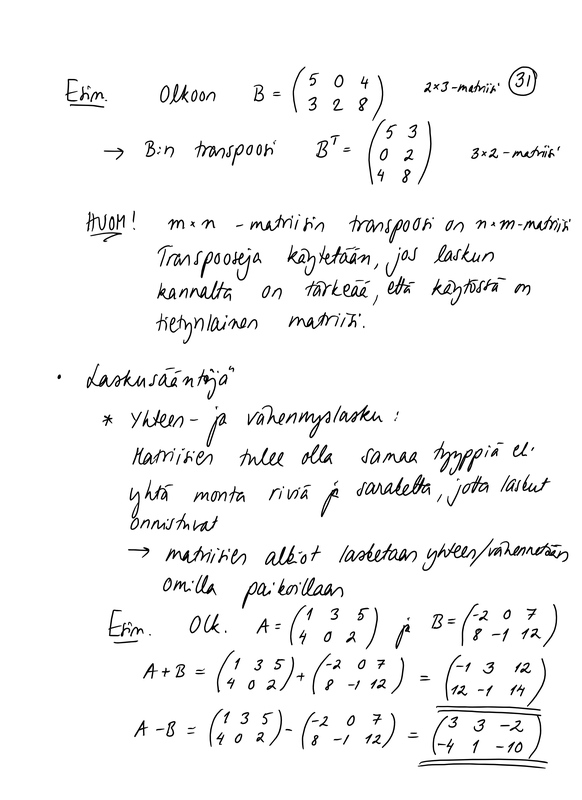 Esim. Olkoon B = (5 0 4 2×3-matriisi 31
3 2 8)
→ B:n transpoosi B^T = (5 3 3×2-matriisi
0 2
4 8)
HUOM! m×n -matriisin transpoosi on n×m-matriisi
Transpooseja käytetään, jos laskun
kannalta on tärkeää, että käytössä on
tietynlainen matriisi.
• Laskusääntöjä
* Yhteen- ja vähennyslasku:
Matriisien tulee olla samaa tyyppiä eli
yhtä monta riviä ja saraketta, jotta laskut
onnistuvat
→ matriisien alkiot lasketaan yhteen/vähennetään
omilla paikoillaan
Esim. Olk. A = (1 3 5 ja B = (-2 0 7
4 0 2) 8 -1 12)
A + B = (1 3 5 + (-2 0 7 = (-1 3 12
4 0 2) 8 -1 12) 12 -1 14)
A - B = (1 3 5 - (-2 0 7 = (3 3 -2
4 0 2) 8 -1 12) -4 1 -10)